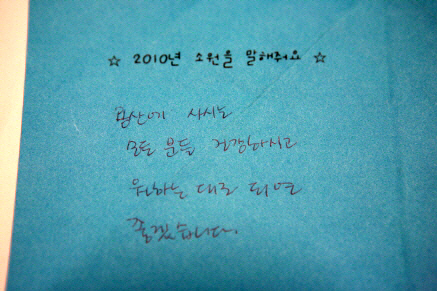 ☆ 2010년 소원을 말해줘요 ☆
용산에 사시는
모든 분들 건강하시고
원하는 대로 되면
좋겠습니다.